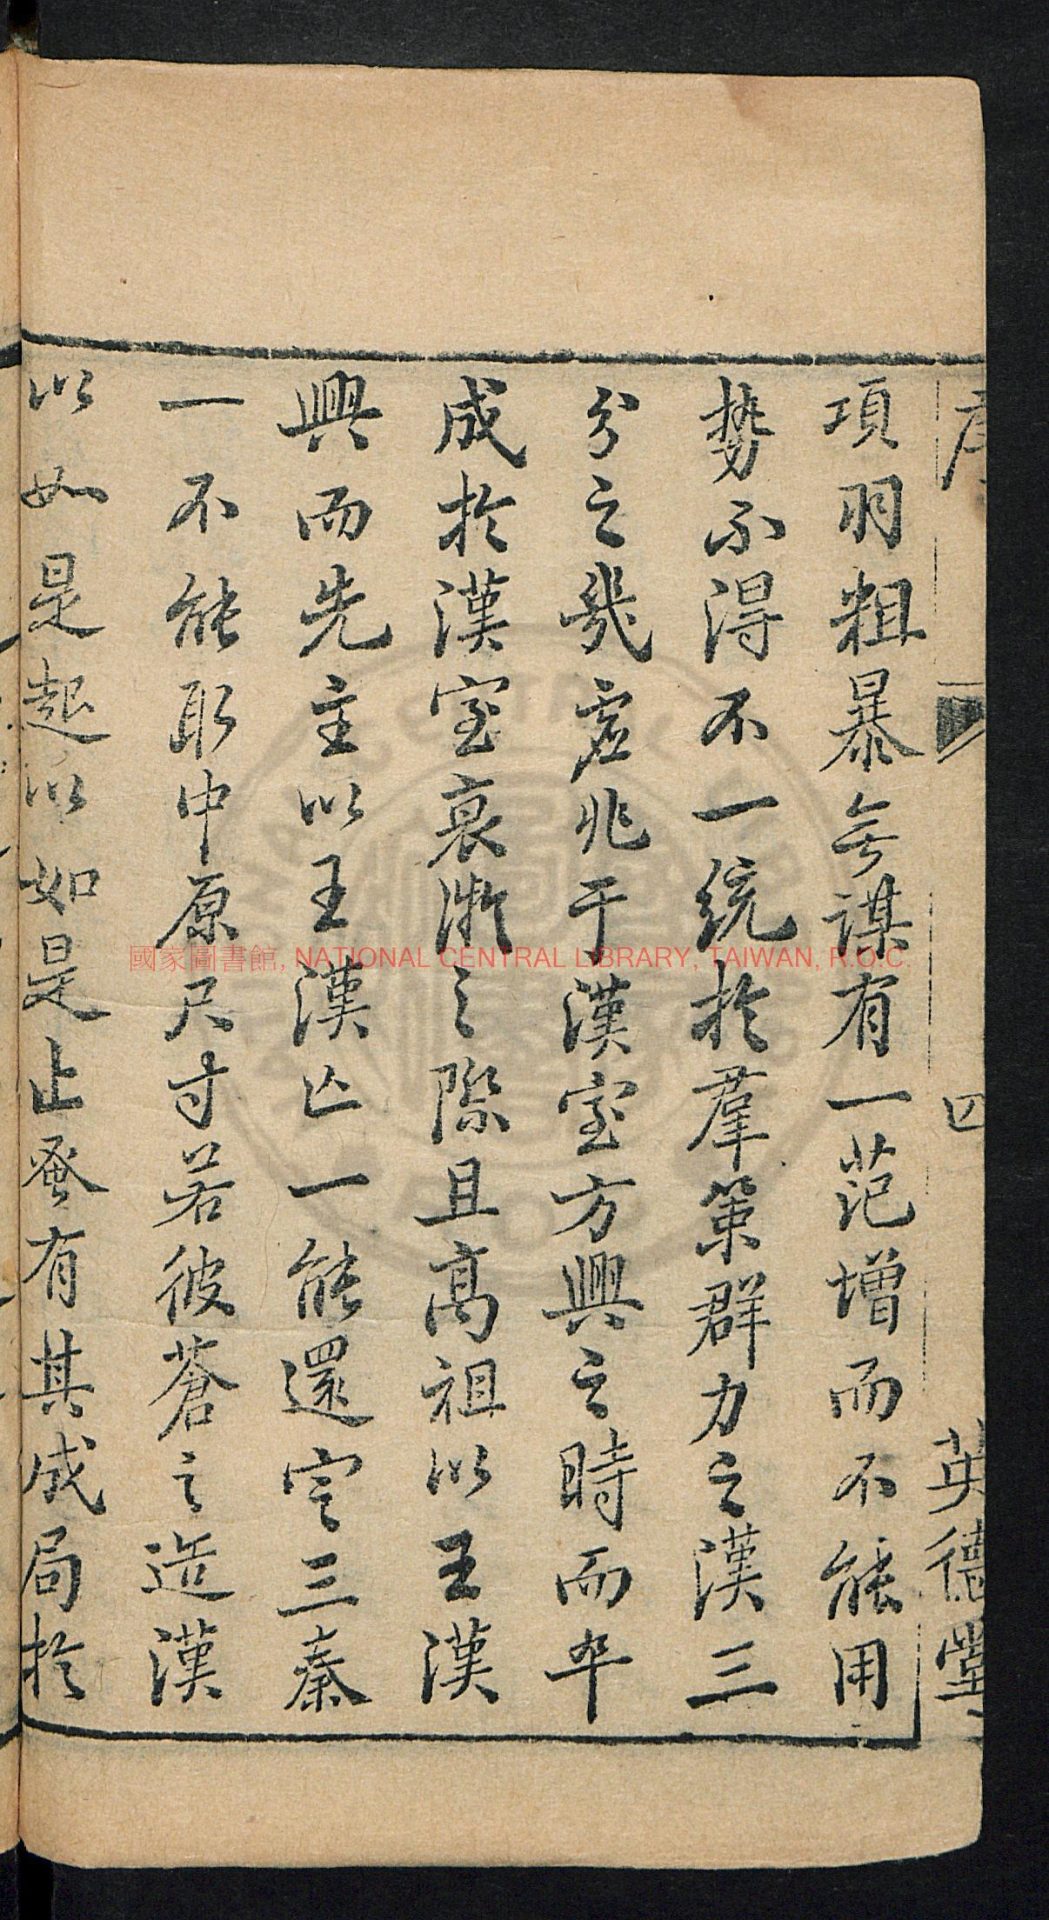 序 四 英德堂
項羽粗暴無謀有一范增而不能用
勢不得不一統於羣策群力之漢三
分之幾虛兆于漢室方興之時而卒
成於漢室衰漸之際且髙祖以王漢
興而先主以王漢亡一能還定三秦
一不能取中原尺寸若彼蒼之造漢
以如是起以如是止蚤有其成局於
國家圖書館, NATIONAL CENTRAL LIBRARY, TAIWAN, R.O.C